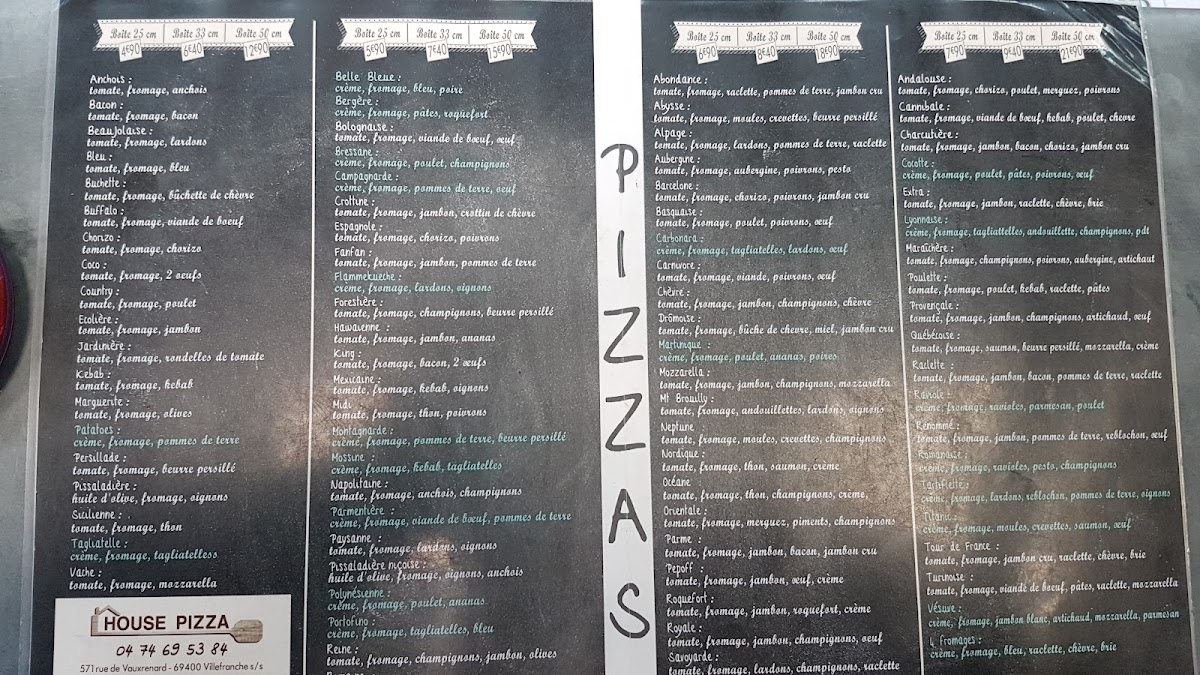 Boîte 25 cm | Boîte 33 cm | Boîte 50 cm
4€90 6€40 12€90
Anchois :
tomate, fromage, anchois
Bacon :
tomate, fromage, bacon
Beaujolaise :
tomate, fromage, lardons
Bleu :
tomate, fromage, bleu
Buchette :
tomate, fromage, bûchette de chèvre
Buffalo :
tomate, fromage, viande de boeuf
Chorizo :
tomate, fromage, chorizo
Coco :
tomate, fromage, 2 oeufs
Country :
tomate, fromage, poulet
Ecolière :
tomate, fromage, jambon
Jardinière :
tomate, fromage, rondelles de tomate
Kebab :
tomate, fromage, kebab
Marguerite :
tomate, fromage, olives
Patatoes :
crème, fromage, pommes de terre
Persillade :
tomate, fromage, beurre persillé
Pissaladière :
huile d'olive, fromage, oignons
Sicilienne :
tomate, fromage, thon
Tagliatelle :
crème, fromage, tagliatelless
Vache :
tomate, fromage, mozzarella
HOUSE PIZZA
04 74 69 53 84
571 rue de Vauxrenard - 69400 Villefranche s/s
Boîte 25 cm | Boîte 33 cm | Boîte 50 cm
5€90 7€40 15€90
Belle Bleue :
crème, fromage, bleu, poire
Bergère :
crème, fromage, pâtes, roquefort
Bolognaise :
tomate, fromage, viande de bœuf, œuf
Bressane :
crème, fromage, poulet, champignons
Campagnarde :
crème, fromage, pommes de terre, œuf
Crottune :
tomate, fromage, jambon, crottin de chèvre
Espagnole :
tomate, fromage, chorizo, poivrons
Fanfan :
tomate, fromage, jambon, pommes de terre
Flammekueche :
crème, fromage, lardons, oignons
Forestière :
tomate, fromage, champignons, beurre persillé
Hawaïenne :
tomate, fromage, jambon, ananas
King :
tomate, fromage, bacon, 2 œufs
Mexicaine :
tomate, fromage, kebab, oignons
Midi :
tomate, fromage, thon, poivrons
Montagnarde :
crème, fromage, pommes de terre, beurre persillé
Mossine :
crème, fromage, kebab, tagliatelles
Napolitaine :
tomate, fromage, anchois, champignons
Parmentière :
crème, fromage, viande de bœuf, pommes de terre
Paysanne :
tomate, fromage, lardons, oignons
Pissaladière niçoise :
huile d'olive, fromage, oignons, anchois
Polynésienne :
crème, fromage, poulet, ananas
Portofino :
crème, fromage, tagliatelles, bleu
Reine :
tomate, fromage, champignons, jambon, olives
PIZZAS
Boîte 25 cm | Boîte 33 cm | Boîte 50 cm
6€90 8€40 18€90
Abondance :
tomate, fromage, raclette, pommes de terre, jambon cru
Abysse :
tomate, fromage, moules, crevettes, beurre persillé
Alpage :
tomate, fromage, lardons, pommes de terre, raclette
Aubergine :
tomate, fromage, aubergine, poivrons, pesto
Barcelone :
tomate, fromage, chorizo, poivrons, jambon cru
Basquaise :
tomate, fromage, poulet, poivrons, œuf
Carbonara :
crème, fromage, tagliatelles, lardons, œuf
Carnivore :
tomate, fromage, viande, poivrons, œuf
Chèvre :
tomate, fromage, jambon, champignons, chèvre
Drômoise :
tomate, fromage, bûche de chevre, miel, jambon cru
Martinique :
crème, fromage, poulet, ananas, poires
Mozzarella :
tomate, fromage, jambon, champignons, mozzarella
Mt Brouilly :
tomate, fromage, andouillettes, lardons, oignons
Neptune :
tomate, fromage, moules, crevettes, champignons
Nordique :
tomate, fromage, thon, saumon, crème
Océane :
tomate, fromage, thon, champignons, crème,
Orientale :
tomate, fromage, merguez, piments, champignons
Parme :
tomate, fromage, jambon, bacon, jambon cru
Pepoff :
tomate, fromage, jambon, œuf, crème
Roquefort :
tomate, fromage, jambon, roquefort, crème
Royale :
tomate, fromage, jambon, champignons, oeuf
Savoyarde :
tomate, fromage, lardons, champignons, raclette
Boîte 25 cm | Boîte 33 cm | Boîte 50 cm
7€90 9€40 21€90
Andalouse :
tomate, fromage, chorizo, poulet, merguez, poivrons
Cannibale :
tomate, fromage, viande de bœuf, kebab, poulet, chevre
Charcutière :
tomate, fromage, jambon, bacon, chorizo, jambon cru
Cocotte :
crème, fromage, poulet, pâtes, poivrons, œuf
Extra :
tomate, fromage, jambon, raclette, chèvre, brie
Lyonnaise :
crème, fromage, tagliattelles, andouillette, champignons, pdt
Maraîchère :
tomate, fromage, champignons, poivrons, aubergine, artichaut
Poulette :
tomate, fromage, poulet, kebab, raclette, pâtes
Provençale :
tomate, fromage, jambon, champignons, artichaud, œuf
Québécoise :
tomate, fromage, saumon, beurre persillé, mozzarella, crème
Raclette :
tomate, fromage, jambon, bacon, pommes de terre, raclette
Raviole :
crème, fromage, ravioles, parmesan, poulet
Renommé :
tomate, fromage, jambon, pommes de terre, reblochon, œuf
Romanaise :
crème, fromage, ravioles, pesto, champignons
Tartiflette :
crème, fromage, lardons, reblochon, pommes de terre, oignons
Titanic :
crème, fromage, moules, crevettes, saumon, œuf
Tour de France :
tomate, fromage, jambon cru, raclette, chèvre, brie
Turinoise :
tomate, fromage, viande de bœuf, pâtes, raclette, mozzarella
Vésuve :
crème, fromage, jambon blanc, artichaud, mozzarella, parmesan
4 fromages :
crème, fromage, bleu, raclette, chèvre, brie